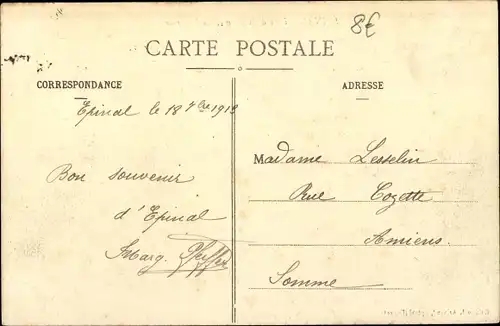 8€
CARTE POSTALE
CORRESPONDANCE
ADRESSE
Epinal le 18 7bre 1913
Bon souvenir
d'Epinal
Marg. Pfeiffer
Madame Lesselin
Rue Cozette
Amiens
Somme